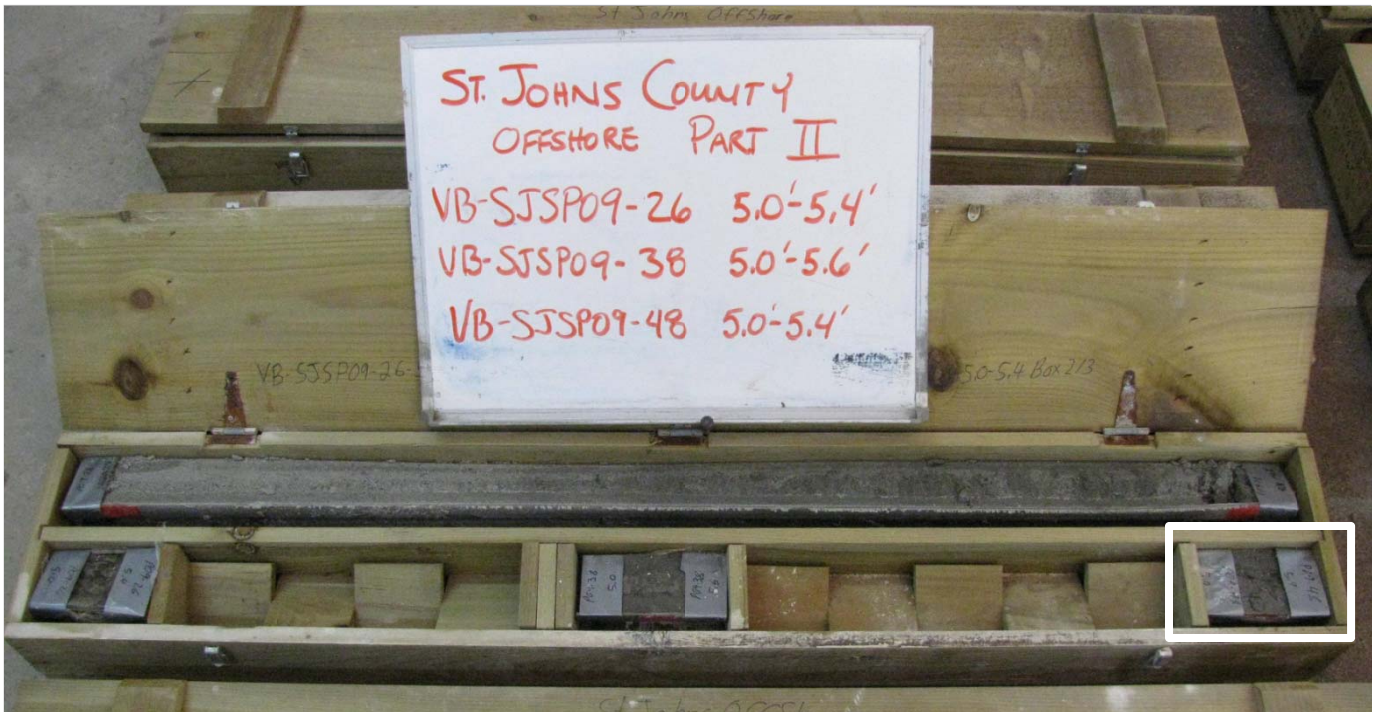 St Johns Offshore
ST. JOHNS COUNTY
OFFSHORE PART II
VB-SJSP09-26 5.0'-5.4'
VB-SJSP09-38 5.0'-5.6'
VB-SJSP09-48 5.0'-5.4'
VB-SJSP09-26- 5.0-5.4 Box 2/3
P09-38
5.0
P09-38
St Johns